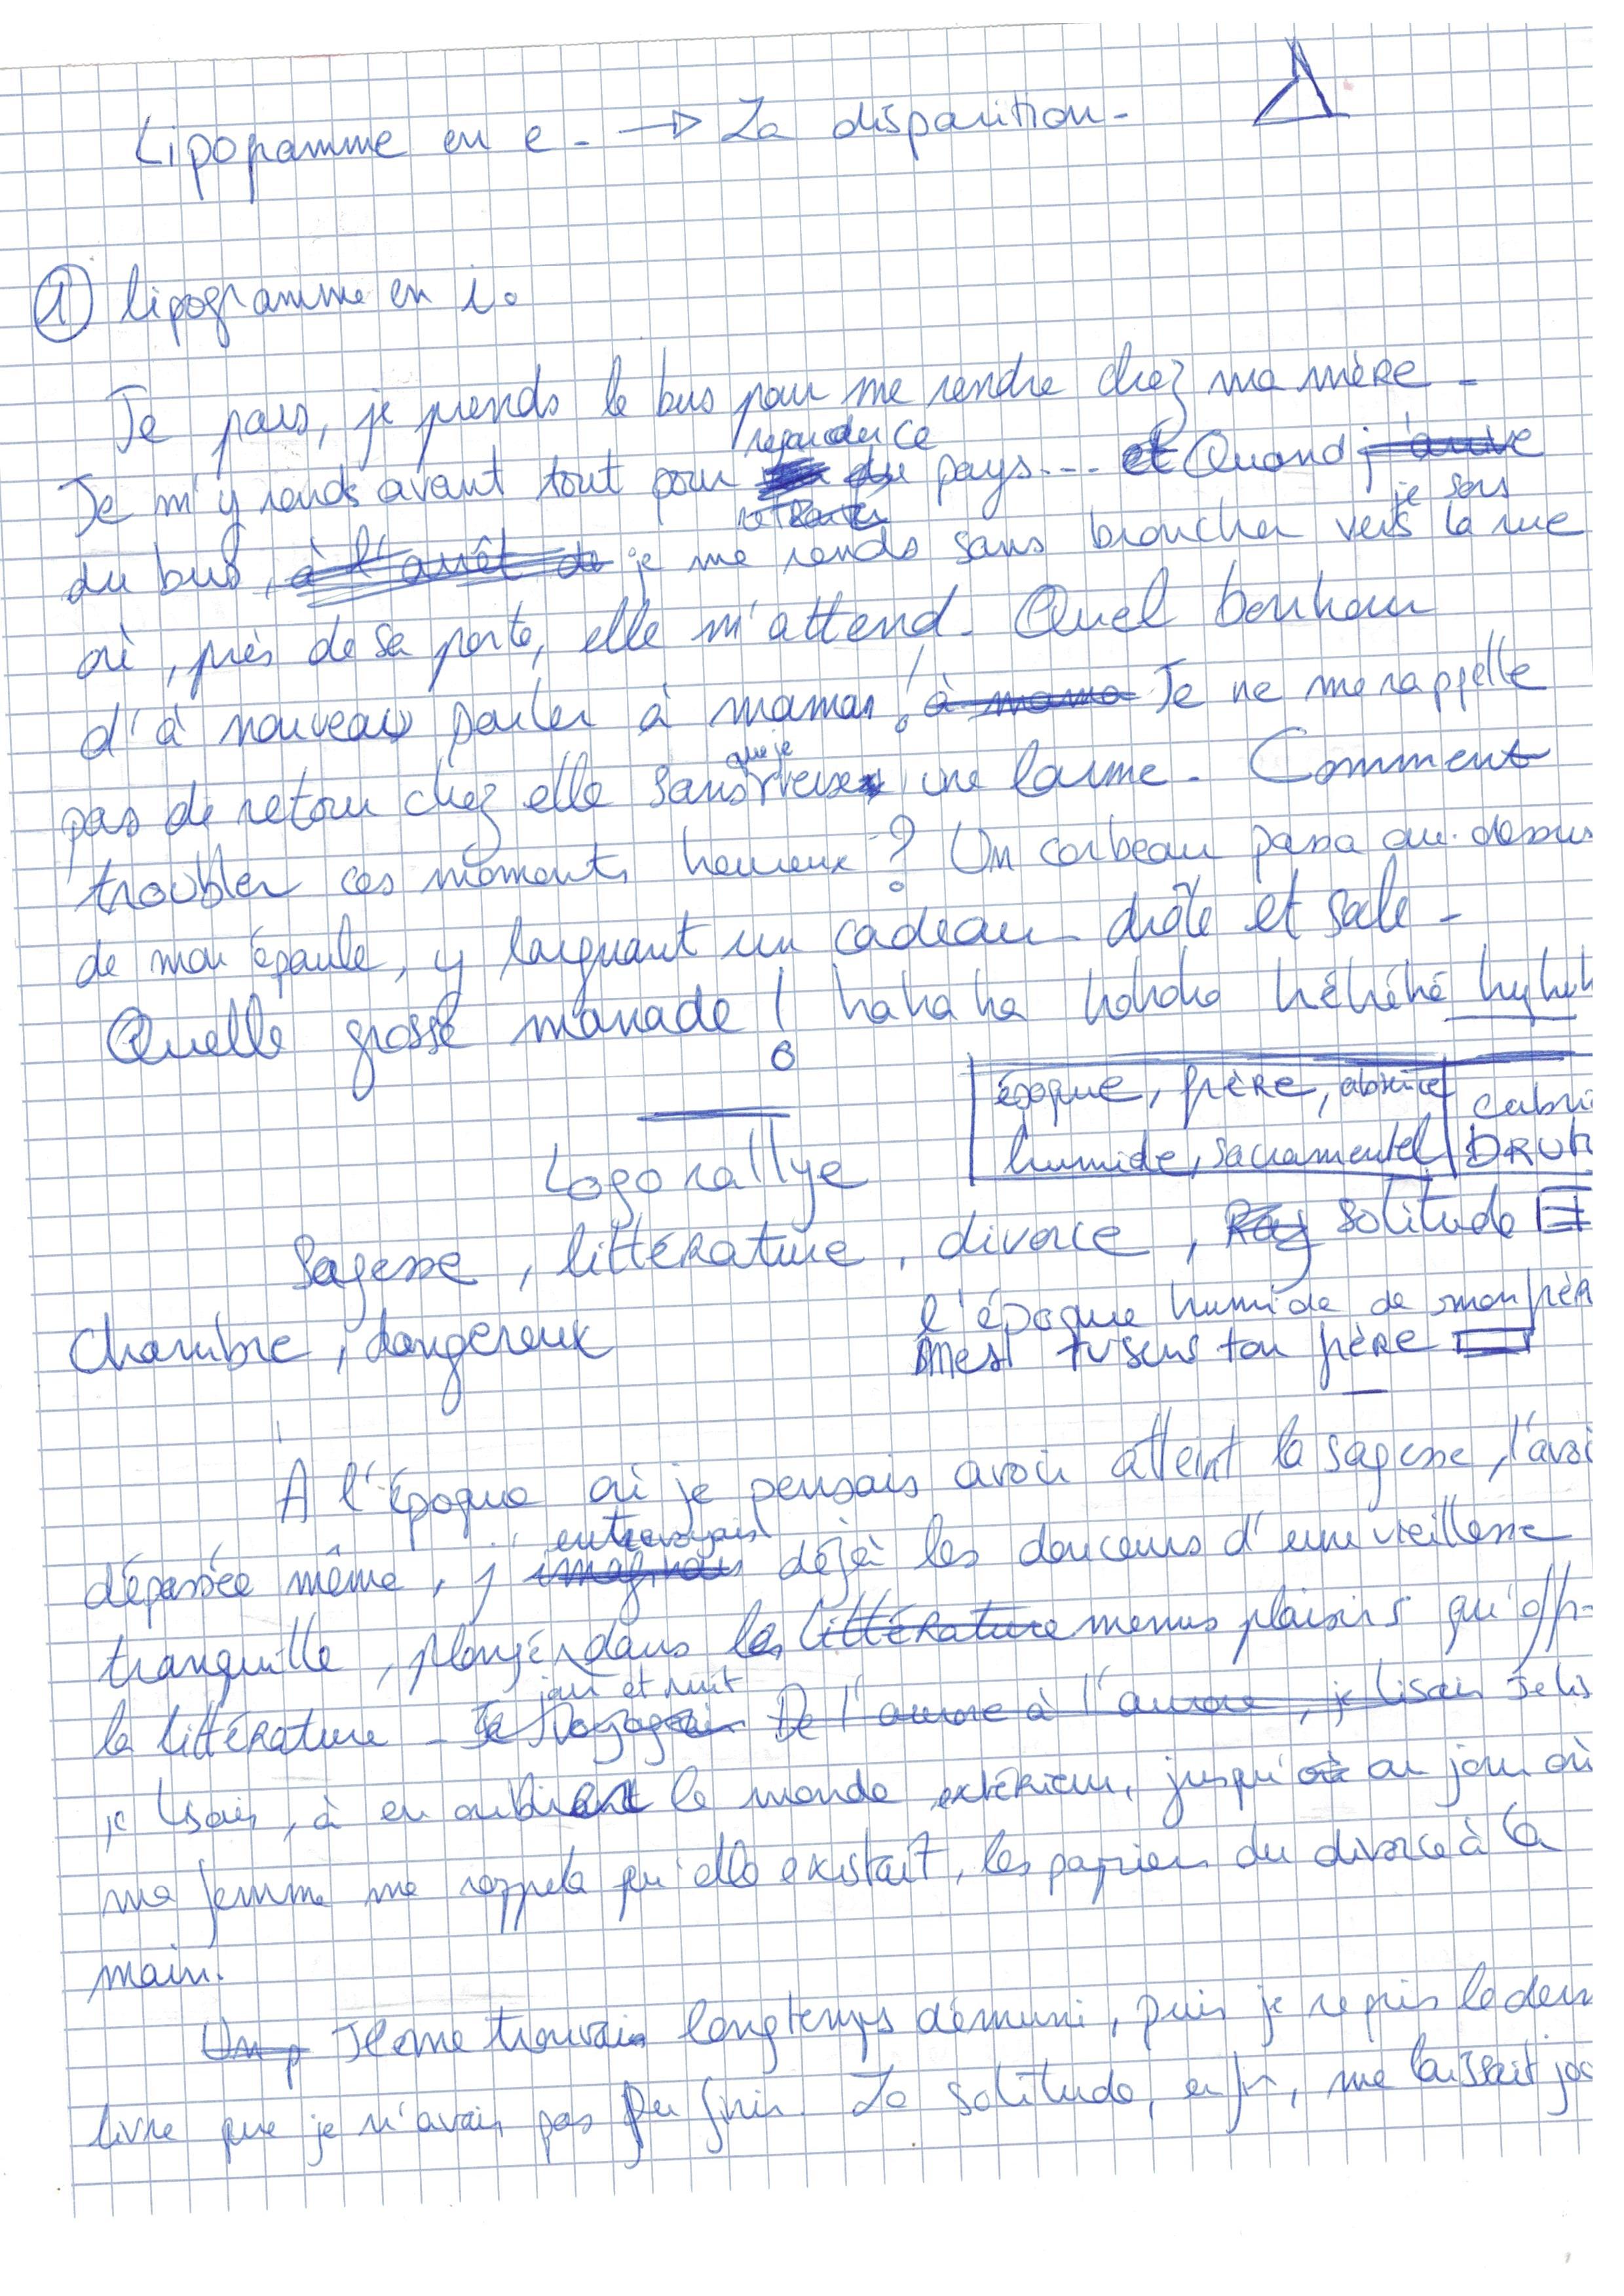 Lipogramme en e. → La disparition.
① lipogramme en i.
Je pars, je prends le bus pour me rendre chez ma mère.
regarder ce
Je m'y rends avant tout pour du pays... et Quand j'arrive
je sors
du bus, à l'arrêt de je me rends sans broncher vers la rue
où, près de sa porte, elle m'attend. Quel bonheur
d'à nouveau parler à maman ! à mama Je ne me rappelle
que je
pas de retour chez elle sans verse une larme. Comment
troubler ces moments heureux ? Un corbeau passa au-dessus
de mon épaule, y larguant un cadeau drôle et sale.
Quelle grosse marrade ! hahaha hohoho héhéhé hyhyh
époque, frère, absence
humide, sacramentel
cabri
Logorallye
Sagesse, littérature, divorce, solitude
Chambre, dangereux
l'époque humide de mon frèr
tu sens ton frère
A l'époque où je pensais avoir atteint la sagesse, l'avoi
entrevoyais
dépassée même, j' imaginais déjà les douceurs d'une vieillesse
tranquille, plongée dans les littérature menus plaisirs qu'offr-
jour et nuit
la littérature. Je voyageais De l'aurore à l'aurore, je lisais Je lis
je lisais, à en oublier le monde extérieur, jusqu'où au jour où
ma femme me rappela qu'elle existait, les papiers du divorce à la
main.
Un p Je me trouvais longtemps démuni, puis je repris le dern
livre que je n'avais pas pu finir. La solitude, enfin, me laissait